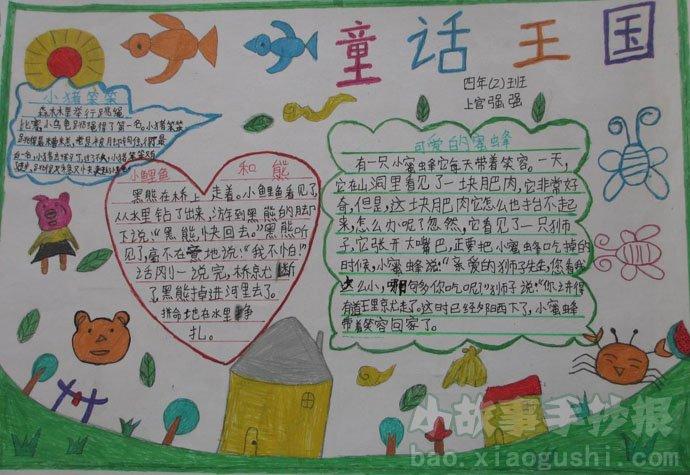 童话王国
四年(2)班
上官强强
小猪笨笨
森林里举行跳绳
比赛,小乌龟跳绳得了第一名。小猪笨笨
可爱的蜜蜂
有一只小蜜蜂它每天带着笑容。一天,
它在山洞里看见了一块肥肉,它非常好
奇,但是,这块肥肉它怎么也抬不起
来,怎么办呢?忽然,它看见了一只狮
子,它张开大嘴巴,正要把小蜜蜂吃掉的
时候,小蜜蜂说:“亲爱的狮子先生,您看我
这么小,哪够你吃呢?”狮子说:“你讲得
有道王里京尤走了。这时已经夕阳西下了,小蜜蜂
带着笑容回家了。
小鲤鱼和熊
黑熊在桥上走着。小鲤鱼看见了
从水里钻了出来,游到黑熊的脚
下说:“黑熊,快回去。”黑熊听
见,毫不在意地说:“我不怕!”
话刚一说完,桥京尤断
了黑熊掉进河里去了。
拼命地在水里挣
扎。
小故事手抄报
bao.xiaogushi.com